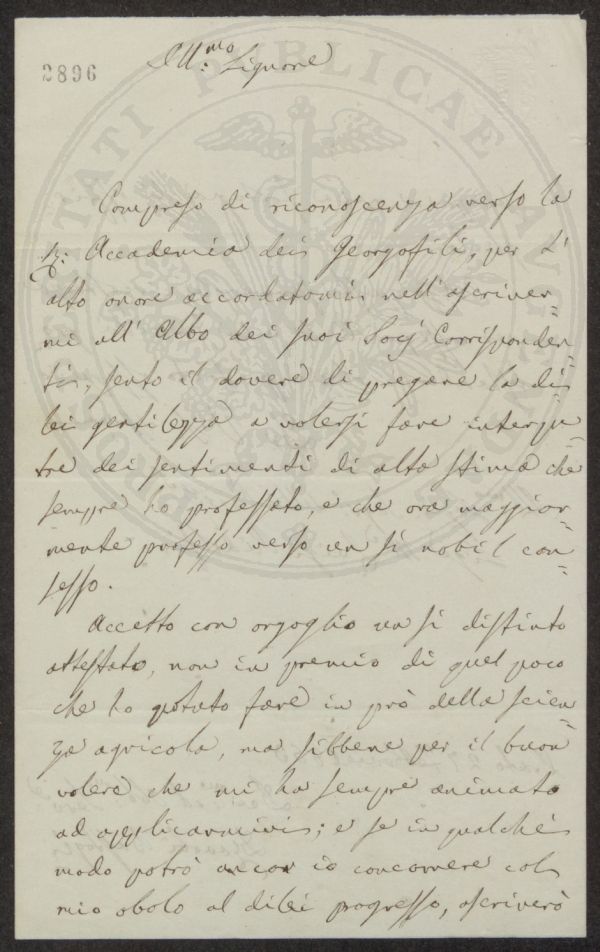 2896
Ill.mo Signore
Compreso di riconoscenza verso la
R: Accademia dei Georgofili, per l'
alto onore accordatomi nell'ascriver=
mi all'Albo dei suoi Socj Corrisponden=
ti, sento il dovere di pregare la di
lei gentilezza a volersi fare interpe=
tre dei sentimenti di alta stima che
sempre ho professato, e che ora maggior=
mente professo verso un sì nobil con=
sesso.
Accetto con orgoglio un sì distinto
attestato, non in premio di quel poco
che ho potuto fare in prò della scien=
za agricola, ma sibbene per il buon
volere che mi ha sempre animato
ad applicarmivi; e se in qualche
modo potrò ancor io concorrere col
mio obolo al dilei progresso, ascriverò